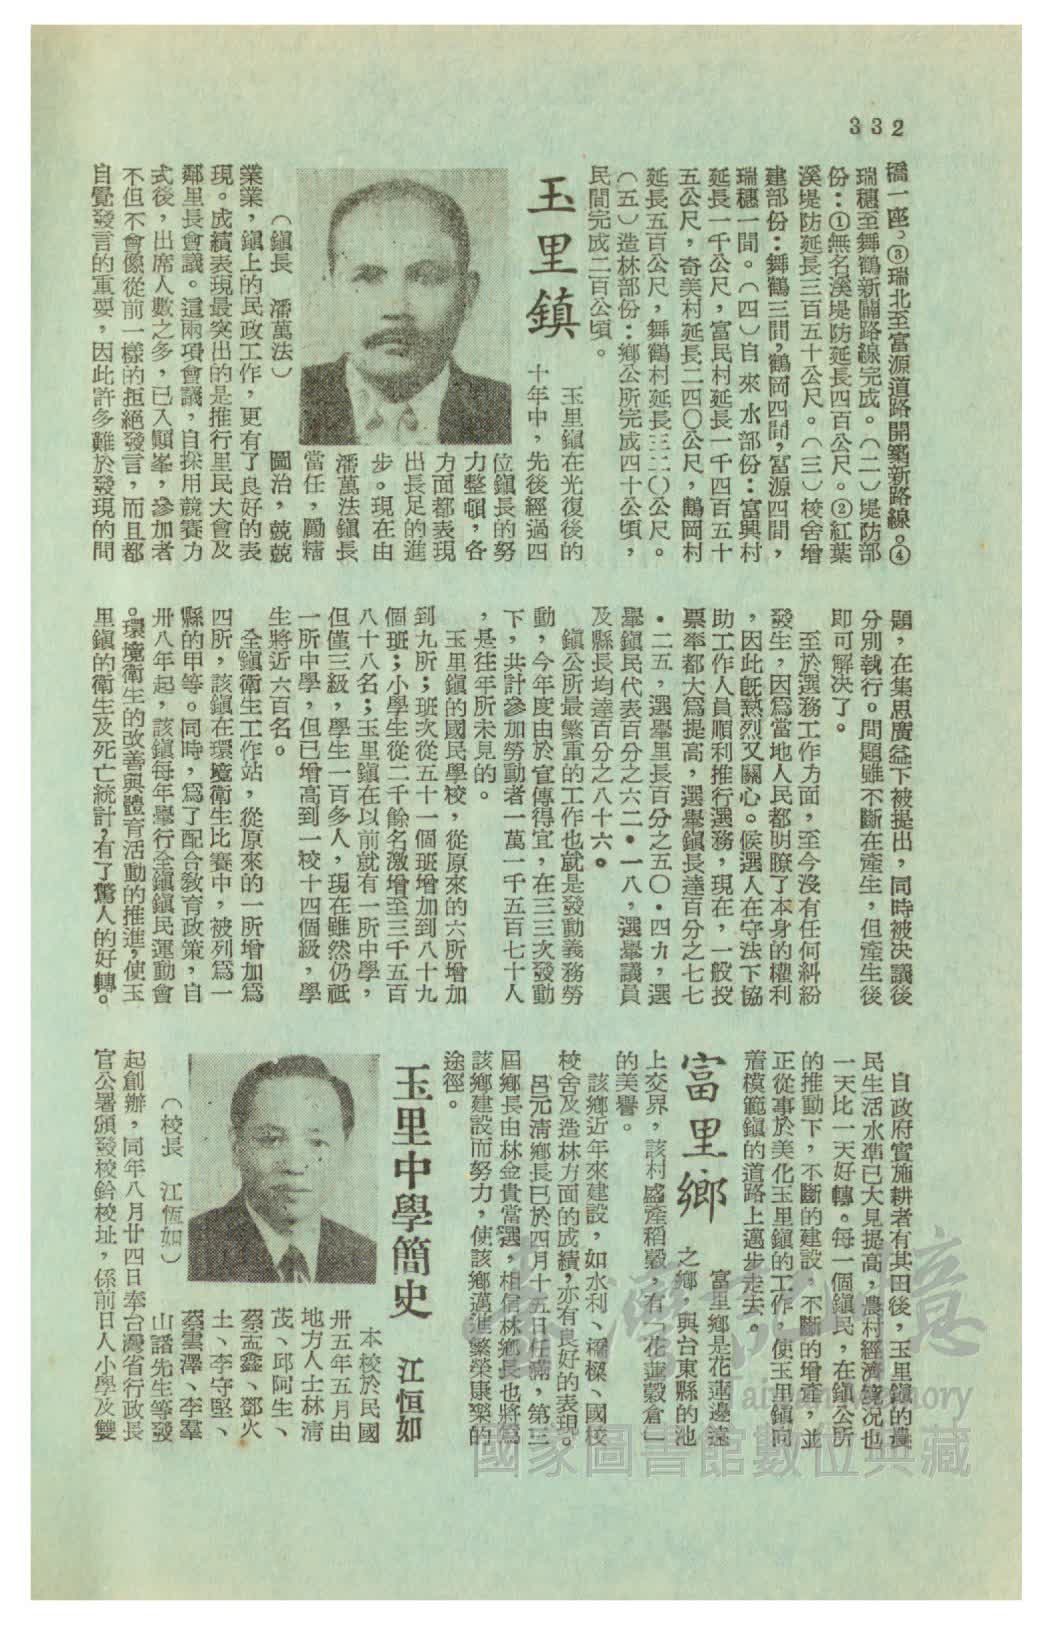 332
橋一座，③瑞北至富源道路開築新路線。④
瑞穗至舞鶴新闢路線完成。（二）堤防部
份：①無名溪堤防延長四百公尺。②紅葉
溪堤防延長三百五十公尺。（三）校舍增
建部份：舞鶴三間，鶴岡四間，富源四間，
瑞穗一間。（四）自來水部份：富興村
延長一千公尺，富民村延長一千四百五十
五公尺，奇美村延長二四〇公尺，鶴岡村
延長五百公尺，舞鶴村延長三二〇公尺。
（五）造林部份：鄉公所完成四十公頃，
民間完成二百公頃。
玉里鎮
玉里鎮在光復後的
十年中，先後經過四
位鎮長的努
力整頓，各
方面都表現
出長足的進
步。現在由
潘萬法鎮長
當任，勵精
（鎮長　潘萬法）
圖治，兢兢
業業，鎮上的民政工作，更有了良好的表
現。成績表現最突出的是推行里民大會及
鄰里長會議。這兩項會議，自採用競賽方
式後，出席人數之多，已入顛峯，參加者
不但不會像從前一樣的拒絕發言，而且都
自覺發言的重要，因此許多難於發現的問
題，在集思廣益下被提出，同時被決議後
分別執行。問題雖不斷在產生，但產生後
即可解決了。
至於選務工作方面，至今沒有任何糾紛
發生，因爲當地人民都明瞭了本身的權利
，因此既熱烈又關心。候選人在守法下協
助工作人員順利推行選務，現在，一般投
票率都大爲提高，選舉鎮長達百分之七七
・二五，選舉里長百分之五〇・四九，選
舉鎮民代表百分之六二・一八，選舉議員
及縣長均達百分之八十六。
鎮公所最繁重的工作也就是發動義務勞
動，今年度由於宣傳得宜，在三三次發動
下，共計參加勞動者一萬一千五百七十人
，是往年所未見的。
玉里鎮的國民學校，從原來的六所增加
到九所；班次從五十一個班增加到八十九
個班；小學生從二千餘名激增至三千五百
八十八名；玉里鎮在以前就有一所中學，
但僅三級，學生一百多人，現在雖然仍祗
一所中學，但已增高到一校十四個級，學
生將近六百名。
全鎮衛生工作站，從原來的一所增加爲
四所，該鎮在環境衛生比賽中，被列爲一
縣的甲等。同時，爲了配合敎育政策，自
卅八年起，該鎮每年舉行全鎮鎮民運動會
。環境衛生的改善與體育活動的推進，使玉
里鎮的衛生及死亡統計，有了驚人的好轉。
自政府實施耕者有其田後，玉里鎮的農
民生活水準已大見提高，農村經濟境況也
一天比一天好轉。每一個鎮民，在鎮公所
的推動下，不斷的建設，不斷的增產，並
正從事於美化玉里鎮的工作，使玉里鎮向
着模範鎮的道路上邁步走去。
富里鄉
富里鄉是花蓮邊遠
之鄉，與台東縣的池
上交界，該村盛產稻穀，有「花蓮穀倉」
的美譽。
該鄉近年來建設，如水利、橋樑、國校
校舍及造林方面的成績，亦有良好的表現。
呂元清鄉長已於四月十五日任滿，第三
屆鄉長由林金貴當選，相信林鄉長也將爲
該鄉建設而努力，使該鄉邁進繁榮康樂的
途徑。
玉里中學簡史　江恒如
本校於民國
卅五年五月由
地方人士林清
茂、邱阿生、
蔡孟鑫、鄧火
土、李守堅、
蔡雲澤、李羣
山諸先生等發
（校長　江恆如）
起創辦，同年八月廿四日奉台灣省行政長
官公署頒發校鈐校址，係前日人小學及雙
臺灣記憶
Taiwan Memory
國家圖書館數位典藏